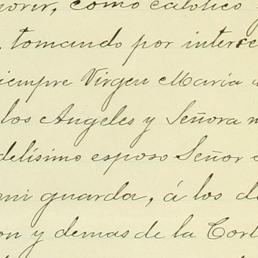 morir, como católico
tomando por interce
siempre Virgen María
los Angeles y Señora n
delísimo esposo Señor
mi guarda, á los d
on y demas de la Cort